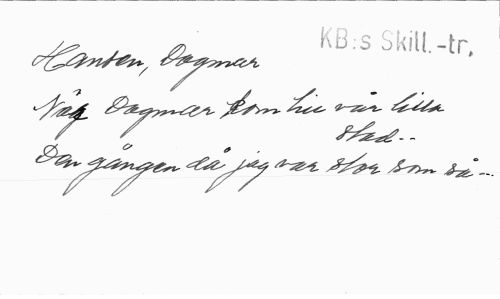 KB:s Skill.-tr.
Hansen, Dagmar
När Dagmar kom till vår lilla
stad..
Den gången då jag var stor som så...